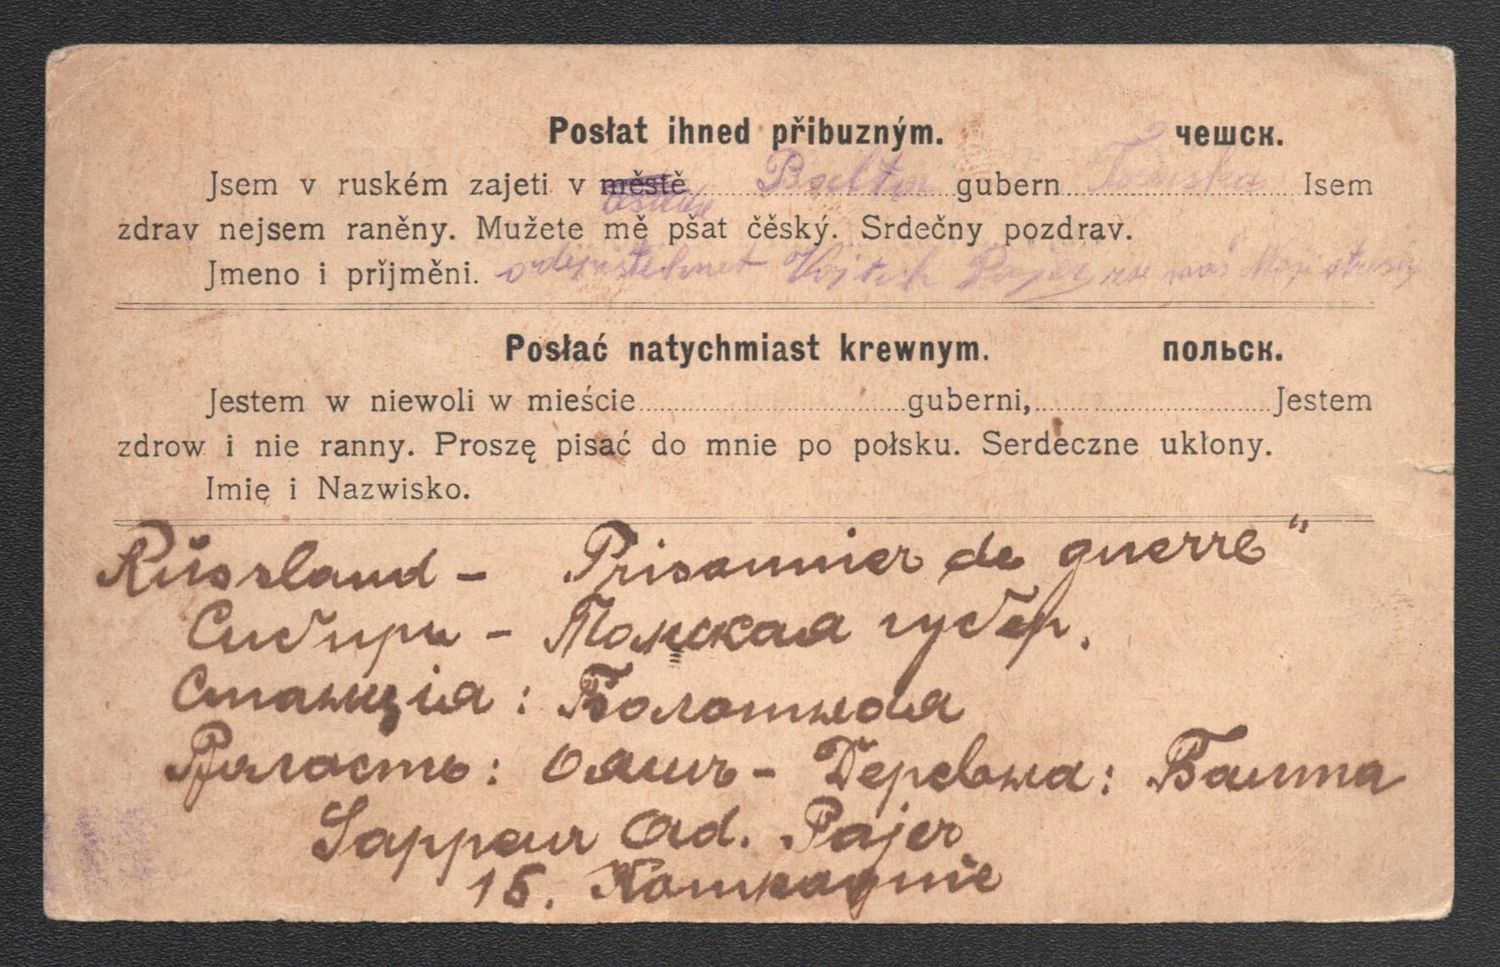 Posłat ihned přibuzným. чешск.
Jsem v ruském zajeti v městě Balta gubern Tomska Isem
osadu
zdrav nejsem raněny. Mužete mě pšat čěský. Srdečny pozdrav.
Jmeno i prǐjměni. Vojtěch Pajer
Posłać natychmiast krewnym. польск.
Jestem w niewoli w mieście guberni, Jestem
zdrow i nie ranny. Proszę pisać do mnie po połsku. Serdeczne ukłony.
Imię i Nazwisko.
Russland - Prisonnier de guerre"
Сибирь - Томская губер.
Станція: Болотная
Ояшъ - Деревна: Балта
Sappeur Ad. Pajer
15. Kompagnie